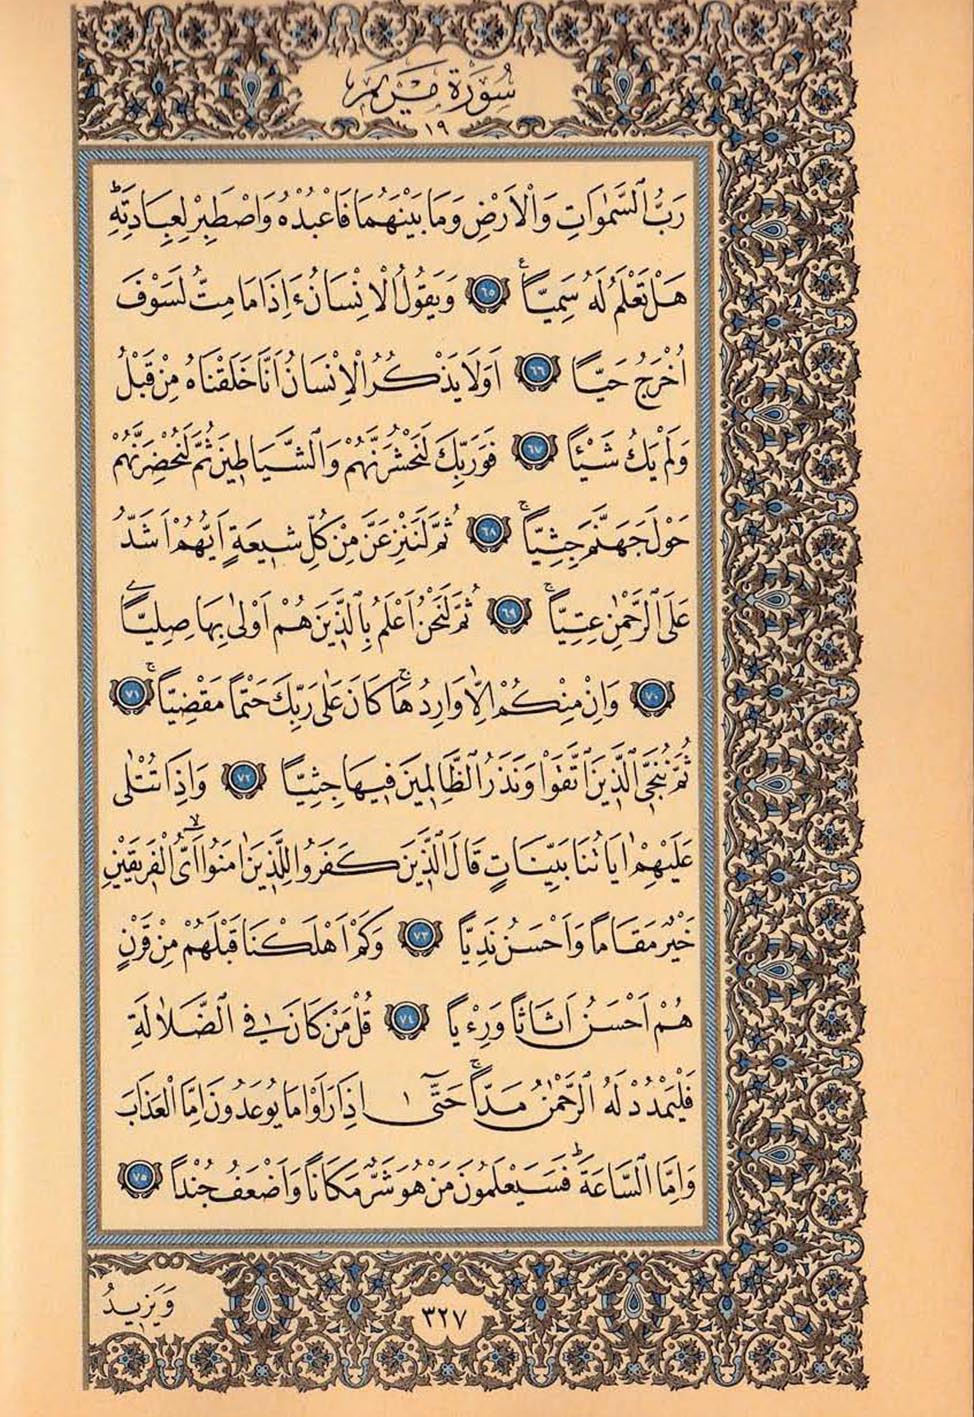 سُورَةُ مَرْيَمَ
١٩
رَبُّ السَّمٰوَاتِ وَالْاَرْضِ وَمَا بَيْنَهُمَا فَاعْبُدْهُ وَاصْطَبِرْ لِعِبَادَتِهِۜ
هَلْ تَعْلَمُ لَهُ سَمِيًّاۚ ٦٥ وَيَقُولُ الْاِنْسَانُ ءَاِذَا مَا مِتُّ لَسَوْفَ
اُخْرَجُ حَيًّا ٦٦ اَوَلَا يَذْكُرُ الْاِنْسَانُ اَنَّا خَلَقْنَاهُ مِنْ قَبْلُ
وَلَمْ يَكُ شَيْـًٔا ٦٧ فَوَرَبِّكَ لَنَحْشُرَنَّهُمْ وَالشَّيَاطِينَ ثُمَّ لَنُحْضِرَنَّهُمْ
حَوْلَ جَهَنَّمَ جِثِيًّاۚ ٦٨ ثُمَّ لَنَنْزِعَنَّ مِنْ كُلِّ شِيعَةٍ اَيُّهُمْ اَشَدُّ
عَلَى الرَّحْمٰنِ عِتِيًّاۚ ٦٩ ثُمَّ لَنَحْنُ اَعْلَمُ بِالَّذِينَ هُمْ اَوْلٰى بِهَا صِلِيًّا
٧٠ وَاِنْ مِنْكُمْ اِلَّا وَارِدُهَاۚ كَانَ عَلٰى رَبِّكَ حَتْمًا مَقْضِيًّاۚ ٧١
ثُمَّ نُنَجِّي الَّذِينَ اتَّقَوْا وَنَذَرُ الظَّالِمِينَ فِيهَا جِثِيًّا ٧٢ وَاِذَا تُتْلٰى
عَلَيْهِمْ اٰيَاتُنَا بَيِّنَاتٍ قَالَ الَّذِينَ كَفَرُوا لِلَّذِينَ اٰمَنُواۙ اَيُّ الْفَرِيقَيْنِ
خَيْرٌ مَقَامًا وَاَحْسَنُ نَدِيًّا ٧٣ وَكَمْ اَهْلَكْنَا قَبْلَهُمْ مِنْ قَرْنٍ
هُمْ اَحْسَنُ اَثَاثًا وَرِءْيًا ٧٤ قُلْ مَنْ كَانَ فِي الضَّلَالَةِ
فَلْيَمْدُدْ لَهُ الرَّحْمٰنُ مَدًّاۚ حَتّٰٓى اِذَا رَاَوْا مَا يُوعَدُونَ اِمَّا الْعَذَابَ
وَاِمَّا السَّاعَةَۜ فَسَيَعْلَمُونَ مَنْ هُوَ شَرٌّ مَكَانًا وَاَضْعَفُ جُنْدًا ٧٥
وَيَزِيدُ
٣٢٧